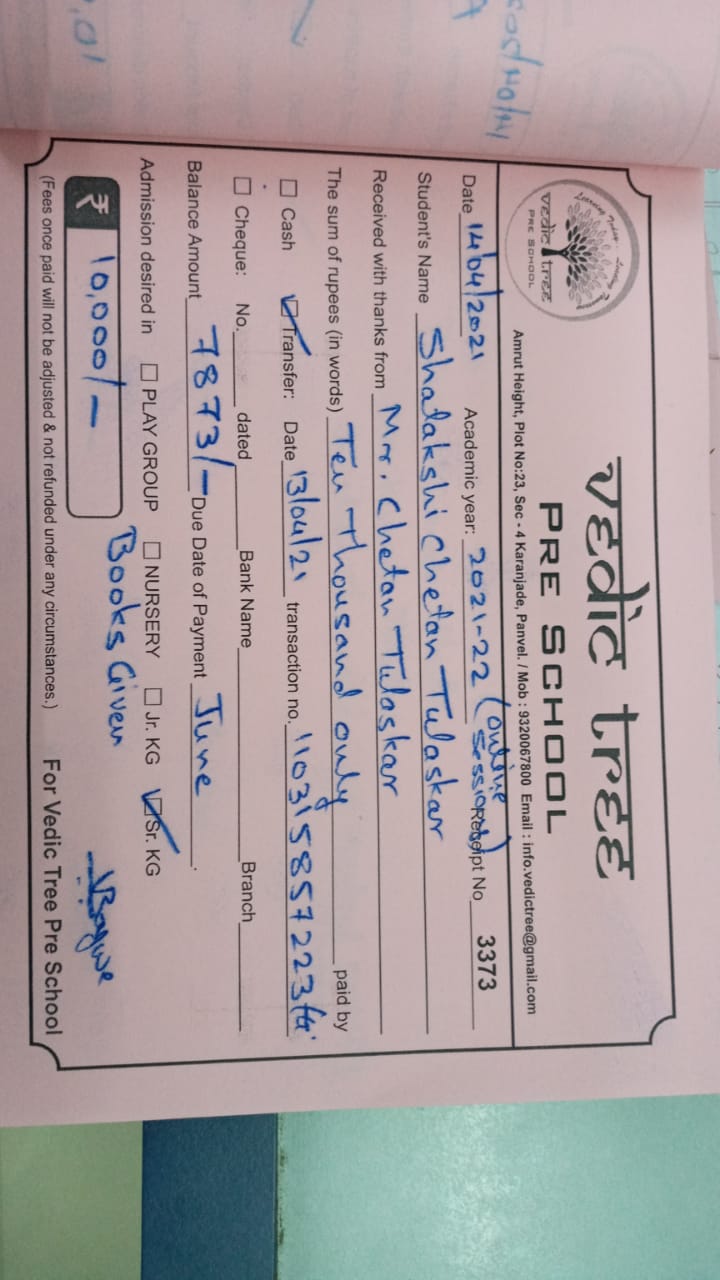 vedic tree
PRE SCHOOL
Learning Today..
vedic tree
PRE SCHOOL
Amrut Height, Plot No:23, Sec - 4 Karanjade, Panvel. / Mob : 9320067800 Email : info.vedictree@gmail.com
Date 14/04/2021 Academic year: 2021-22 (online session) Receipt No 3373
Student's Name Shalakshi Chetan Tulaskar
Received with thanks from Mr. Chetan Tulaskar
The sum of rupees (in words) Ten Thousand only paid by
Cash Transfer: Date 13/04/21 transaction no. 110315857223
Cheque: No. dated Bank Name Branch
Balance Amount 7873/- Due Date of Payment June
Admission desired in PLAY GROUP NURSERY Jr. KG Sr. KG
₹ 10,000/- Books Given
(Fees once paid will not be adjusted & not refunded under any circumstances.) For Vedic Tree Pre School